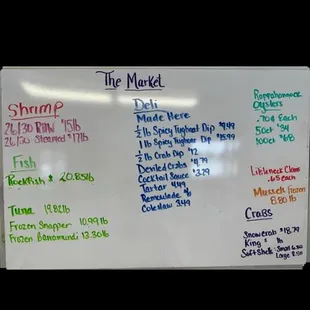 The Market
Shrimp
26/30 Raw $15 lb
26/30 Steamed $17 lb
Fish
Rockfish $ 20.85 lb
Tuna 19.82 lb
Frozen Snapper 10.99 lb
Frozen Barramundi 13.30 lb
Deli
Made Here
1/2 lb Spicy Tughoat Dip $9.49
1 lb Spicy Tughoat Dip $15.99
1/2 lb Crab Dip $12
Deviled Crabs $4.79
Cocktail Sauce $3.29
Tartar 4.49
Remoulade $6
Coleslaw 3.49
Rappahannock
Oysters
.70¢ Each
50ct $34
100ct $68
Littleneck Clams
.65 each
Mussels Frozen
8.80 lb
Crabs
Snow crab $18.79
King $ lb
Soft Shells: Small
Large